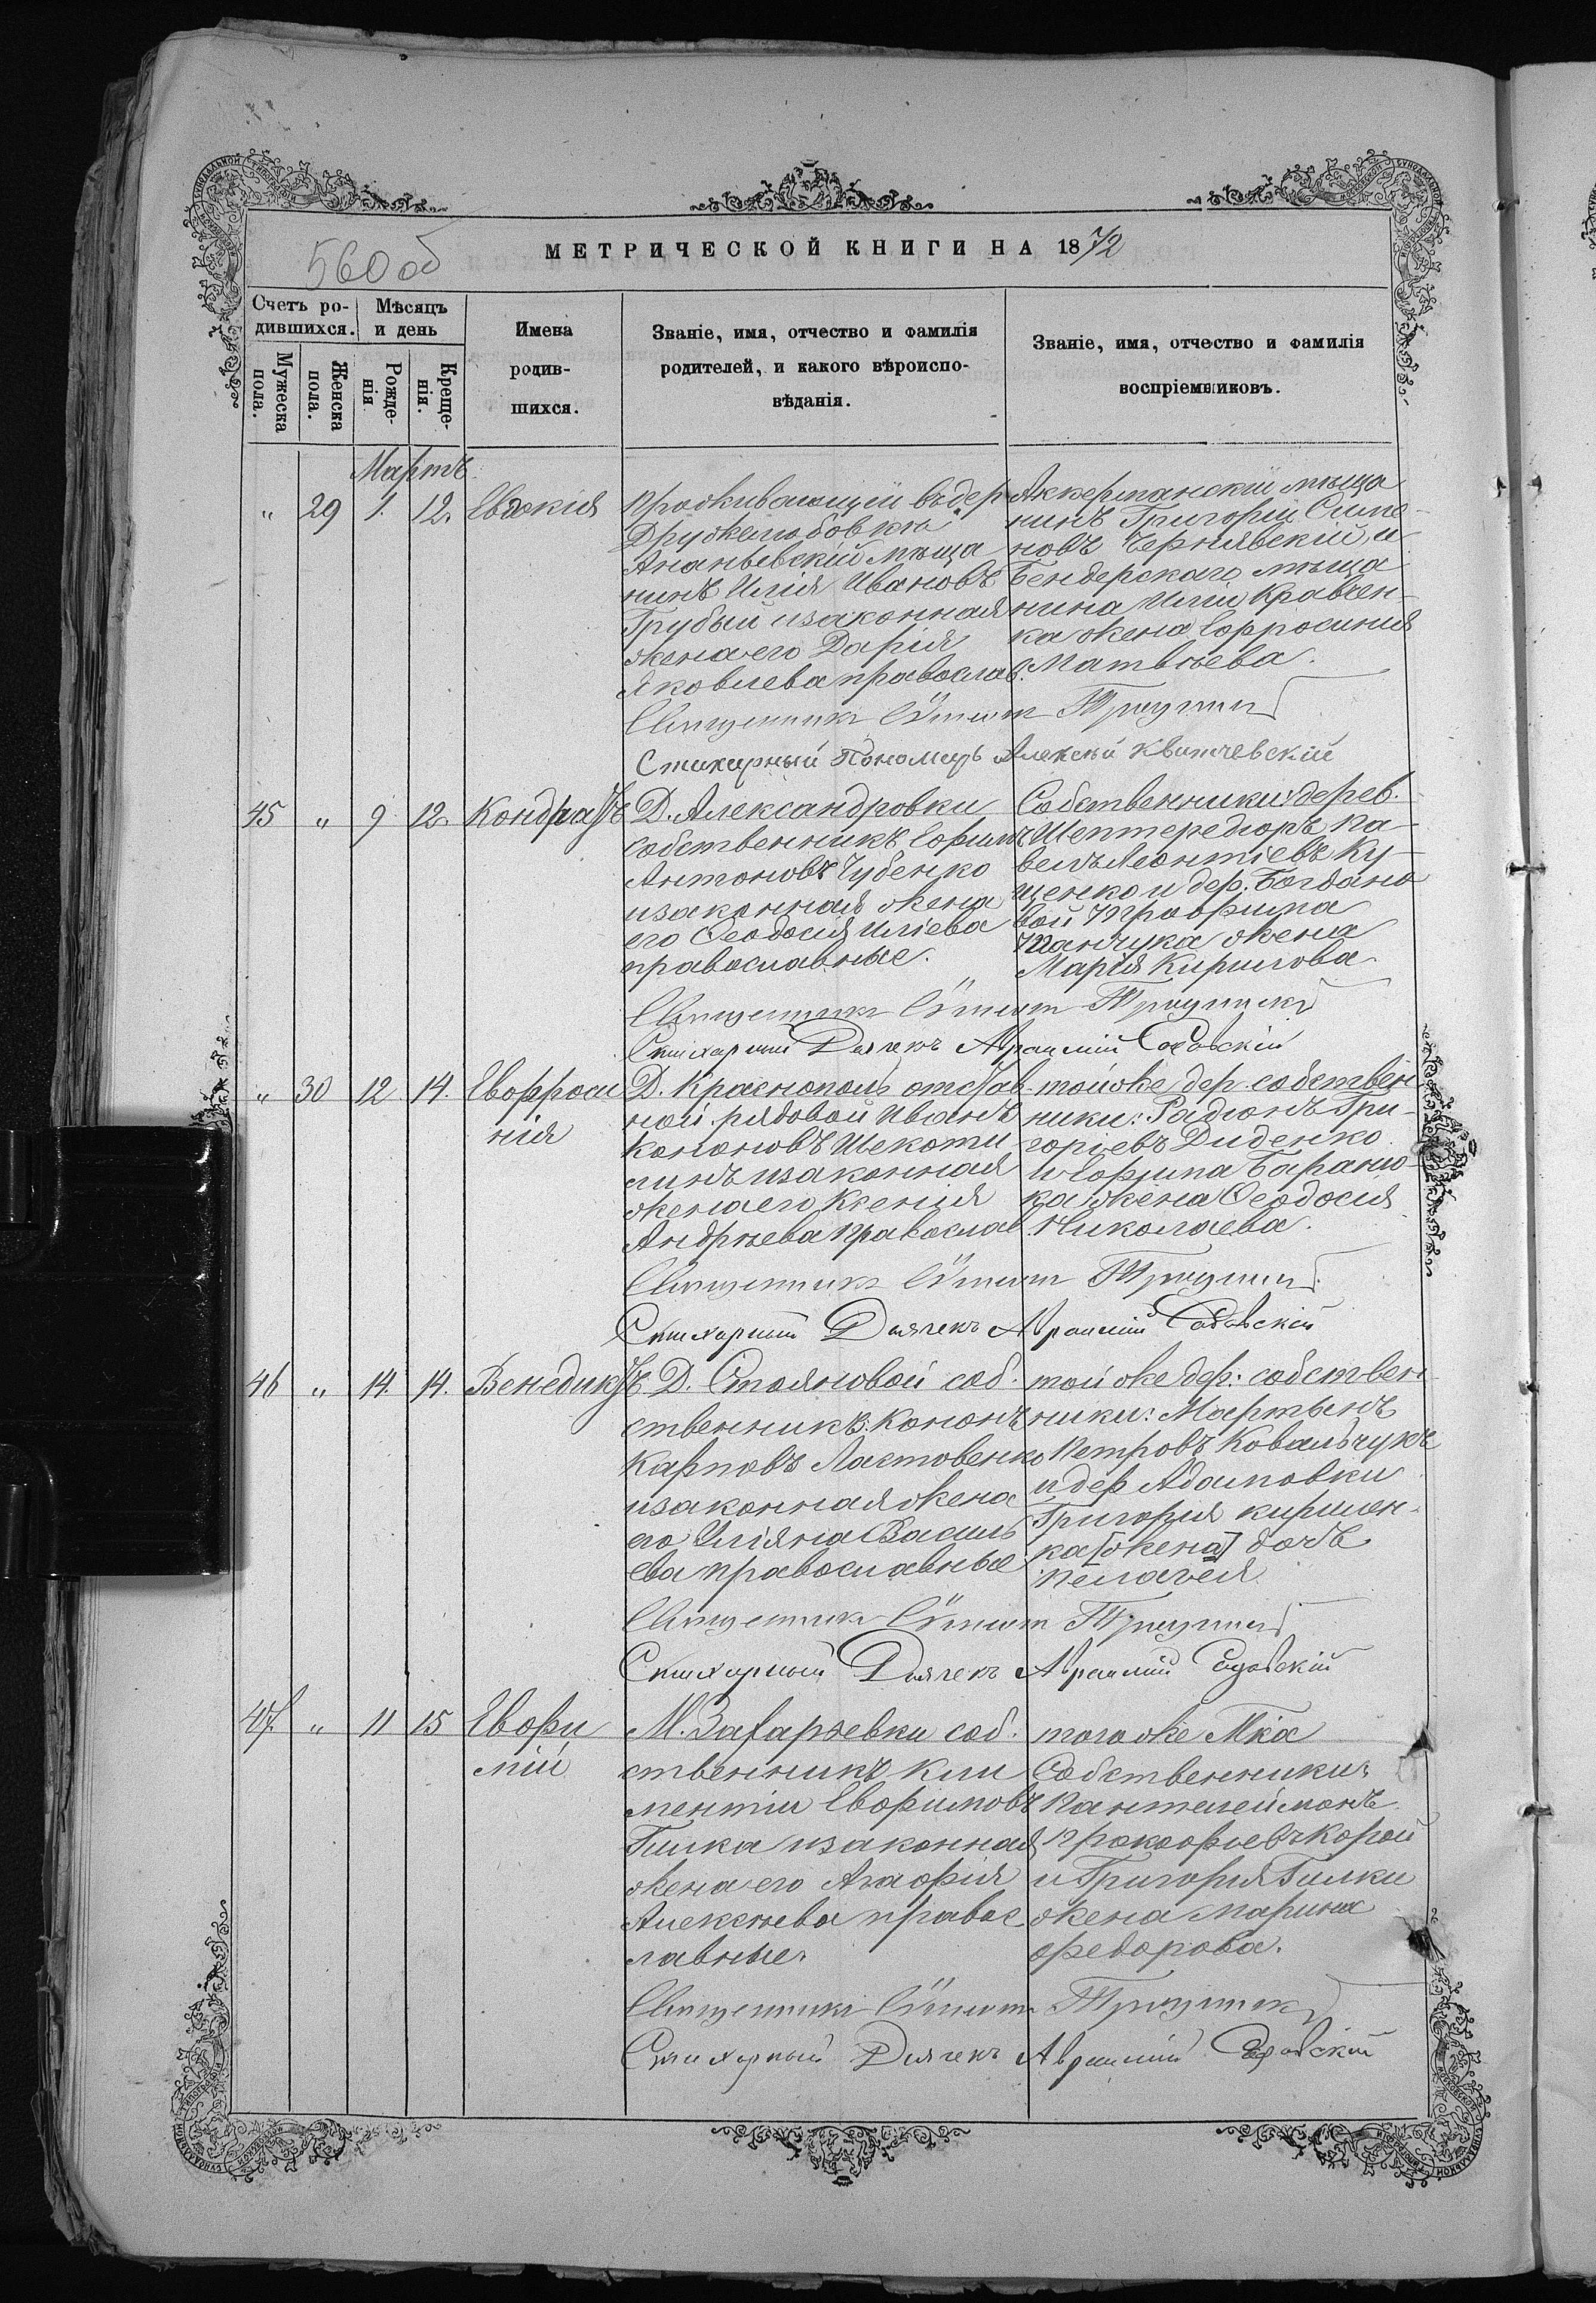 560 об
МЕТРИЧЕСКОЙ КНИГИ НА 1872
Счетъ ро-
дившихся.
Мѣсяцъ
и день
Имена
родив-
шихся.
Званіе, имя, отчество и фамилія
родителей, и какого вѣроиспо-
вѣданія.
Званіе, имя, отчество и фамилія
воспріемниковъ.
Мужеска
пола.
Женска
пола.
Рожде-
нія
Креще-
нія.
Мартъ
" 29 1. 12. Евдокія
Проживающій въ дер
Дружелюбовкѣ
Ананьевскій мѣща
нинъ Илія Ивановъ
Грубый и законная
жена его Дарія
Яковлева православ.
Аккерманскій мѣща
нинъ Григорій Симе-
новъ Чернявскій, и
Бендерскаго мѣща
нина Иліи Кравчен-
ка жена Ефросинія
Матвѣева.
Священникъ
Стихарный Пономарь Алексѣй Квитчевскій
45 " 9 12. Кондратъ
Д. Александровки
собственникъ Ефимъ
Антоновъ Чубенко
и законная жена
его Феодосія Иліева
православные.
Собственники: дерев.
Шептередюръ Па-
велъ Леонтіевъ Ку-
щенко и дер. Богдано
вой Трофима
Панчука жена
Марія Кирилова.
Священникъ
Стихарный Дьячекъ Авраамій Садовскій
" 30 12 14. Евфроси
нія
Д. Краснополь отстав
ной рядовой Иванъ
Кононовъ Щекоти
линъ и законная
жена его Ксенія
Андрѣева православ
той же дер. собствен
ники: Радіонъ Гри-
горіевъ Диденко
и Ефима Барано-
ка жена Феодосія
Николаева.
Священникъ
Стихарный Дьячекъ Авраамій Садовскій
46 " 14. 14. Венедиктъ
Д. Стояновой соб.
ственникъ: Кононъ
Карповъ Ластовенко
и законная жена
его Иліяна Василь
ева православные
той же дер: собствен
ники: Мартынъ
Петровъ Ковальчукъ
и дер Адамовки
Григорія Кирилен-
ка [жена] дочь
Пелагея.
Священникъ
Стихарный Дьячекъ Авраамій Садовскій
47. " 11 15 Евфи
мій
М. Захарьевки соб.
ственникъ Кли
ментій Евфимовъ
Гилка и законная
жена его Агафія
Алексѣева правос
лавные.
того же М-ка
Собственники:
Пантелеймонъ
Прокофьевъ Корой
и Григорія Гилки
жена Марина
Федорова.
Священникъ
Стихарный Дьячекъ Авраамій Садовскій